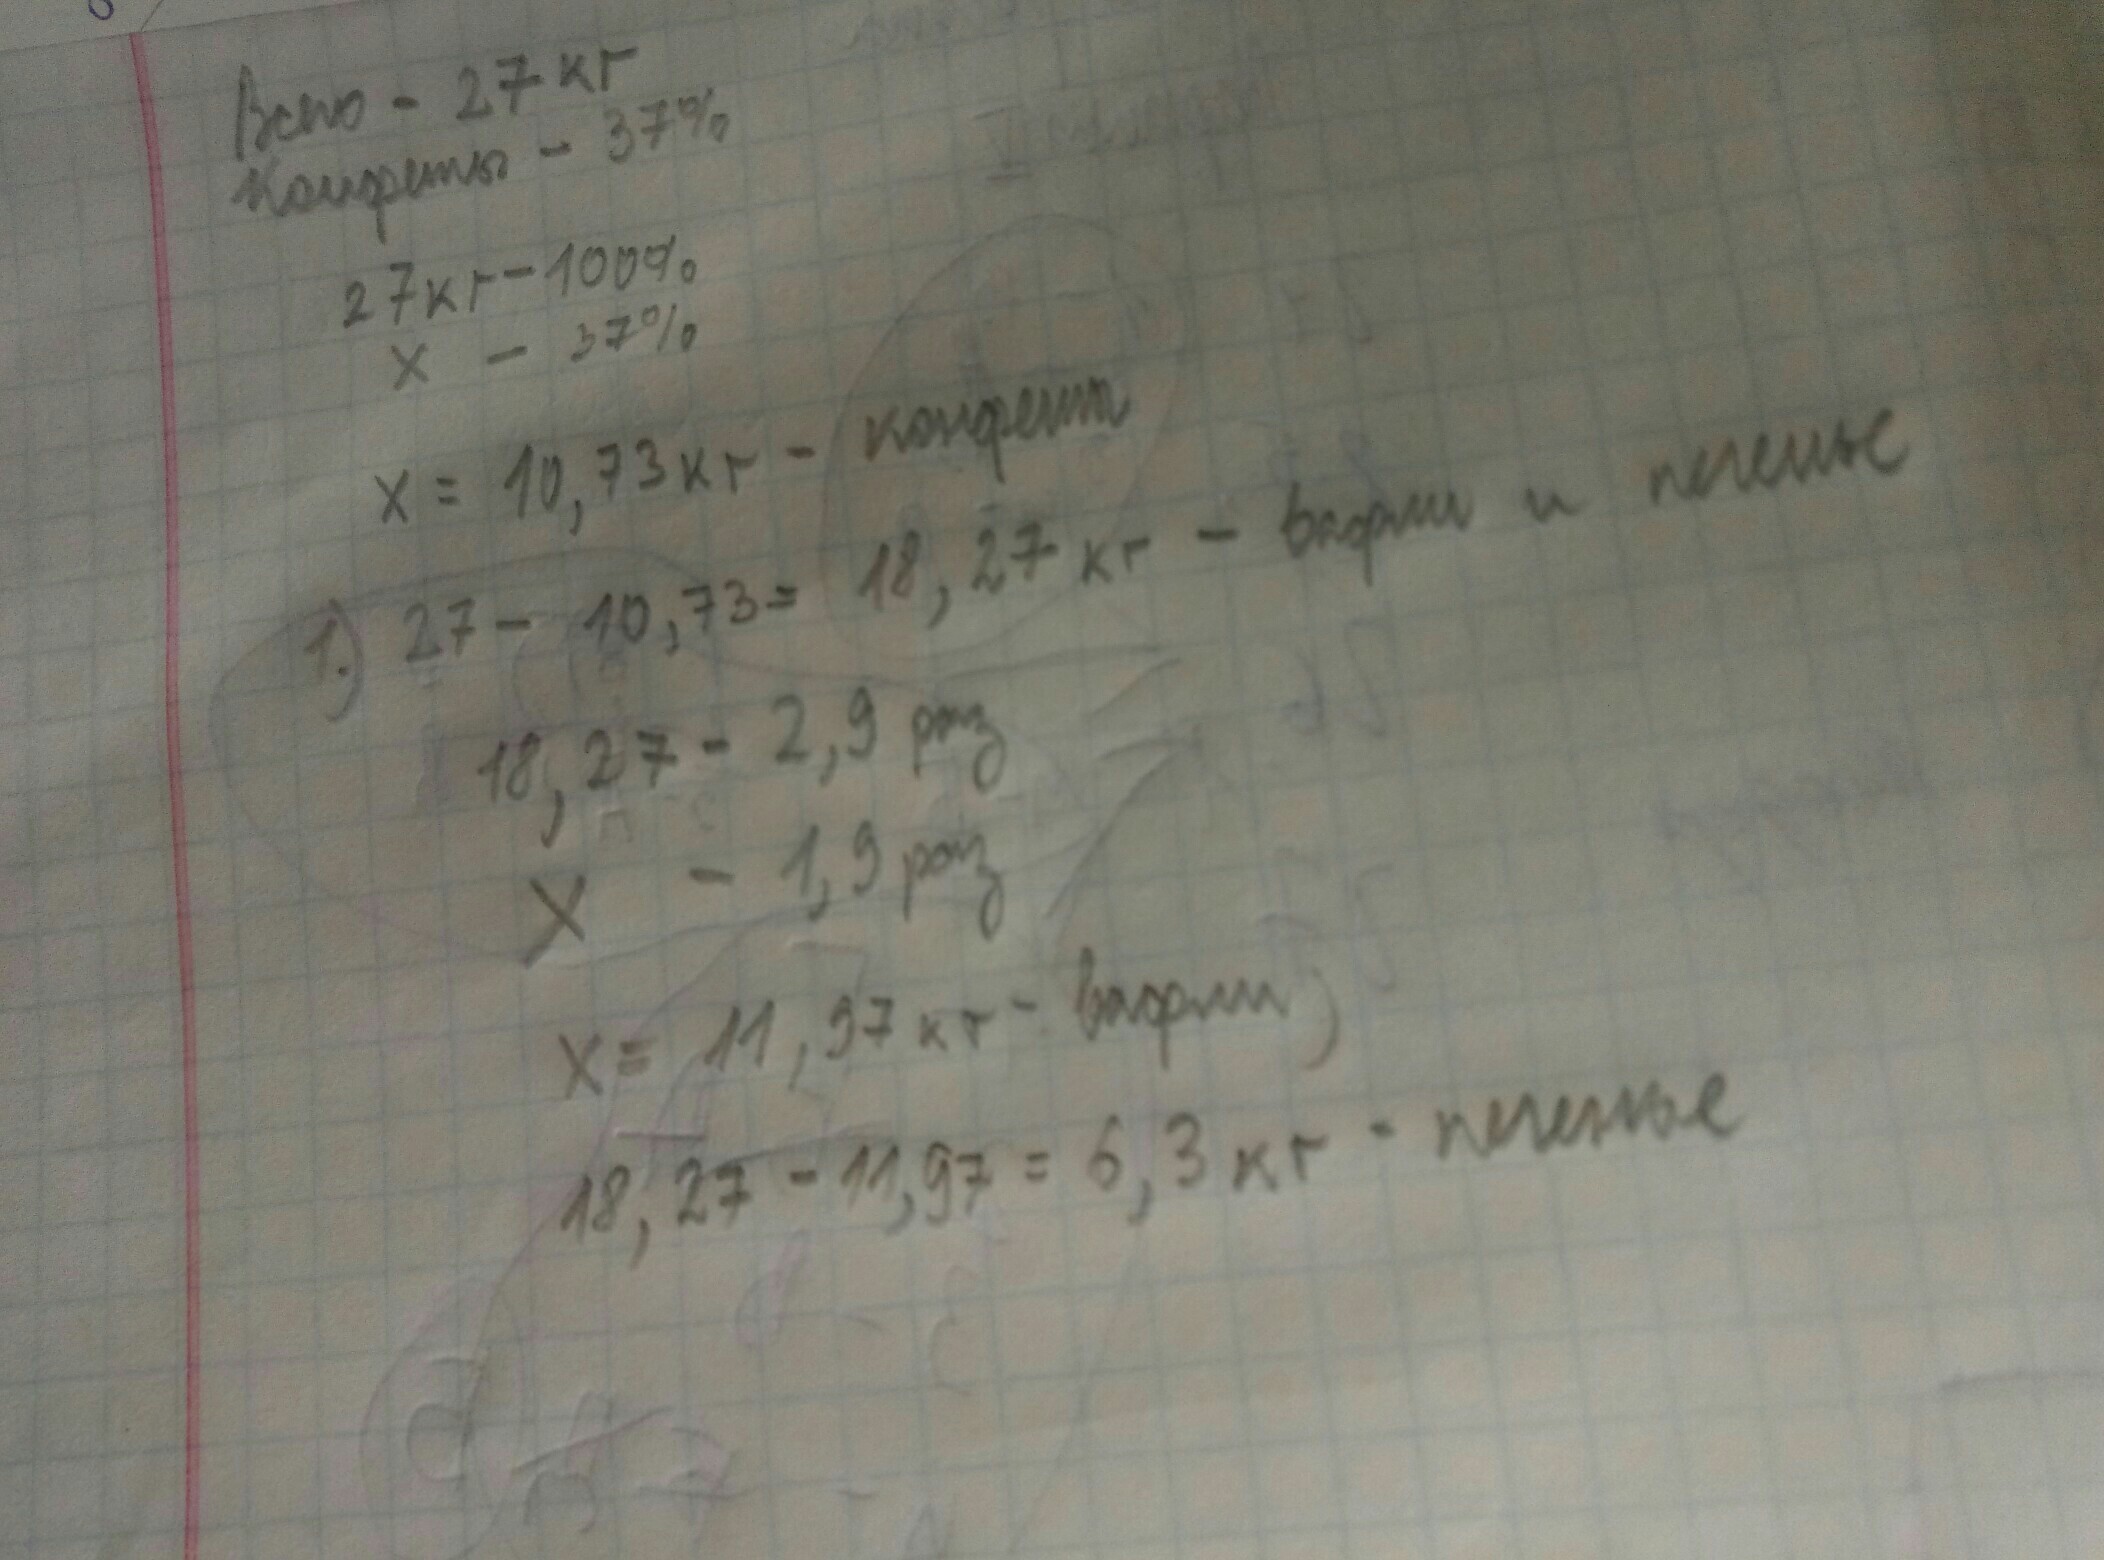 Всего - 27 кг
Конфеты - 37%
27 кг - 100%
x - 37%
x = 10,73 кг - конфеты
1.) 27 - 10,73 = 18,27 кг - вафли и печенье
18,27 - 2,9 раз
x - 1,9 раз
x = 11,97 кг - вафли;
18,27 - 11,97 = 6,3 кг - печенье